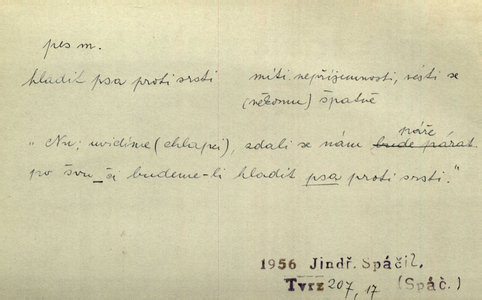 pes m.
hladit psa proti srsti míti nepříjemnosti, vésti se
(někomu) špatně
páře
„Nu, uvidíme (chlapci), zdali se nám bude párat
po švu – či budeme-li hladit psa proti srsti."
1956 Jindř. Spáčil,
Tvrz 207, 17 (Spáč.)